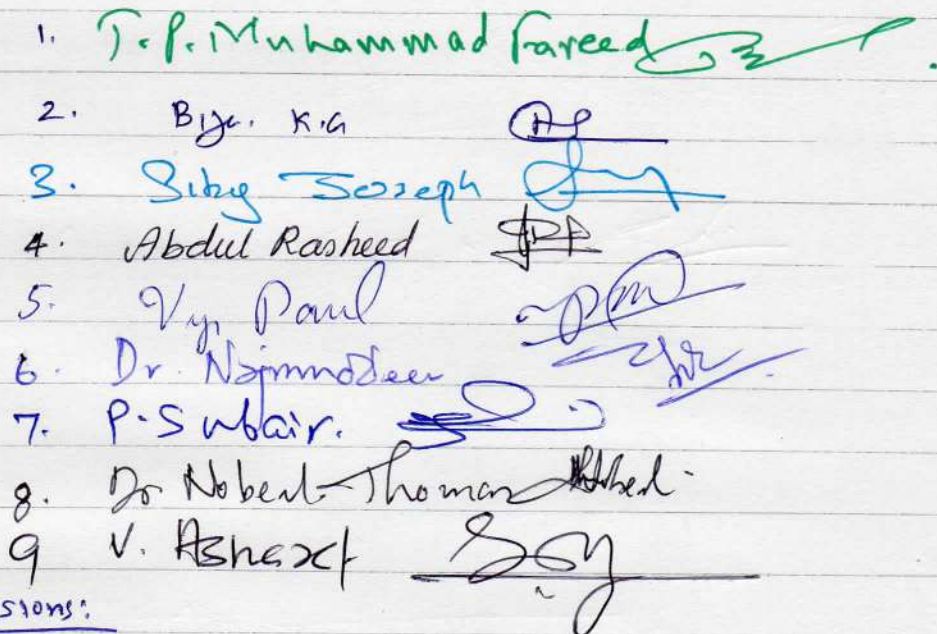 1. T.P. Muhammad Fareed
2. Biju. K.G
3. Siby Joseph
4. Abdul Rasheed
5. V.y. Paul
6. Dr. Najmudeen
7. P. Subair.
8. Dr Nobert Thomas
9 V. Ashraf
sions: